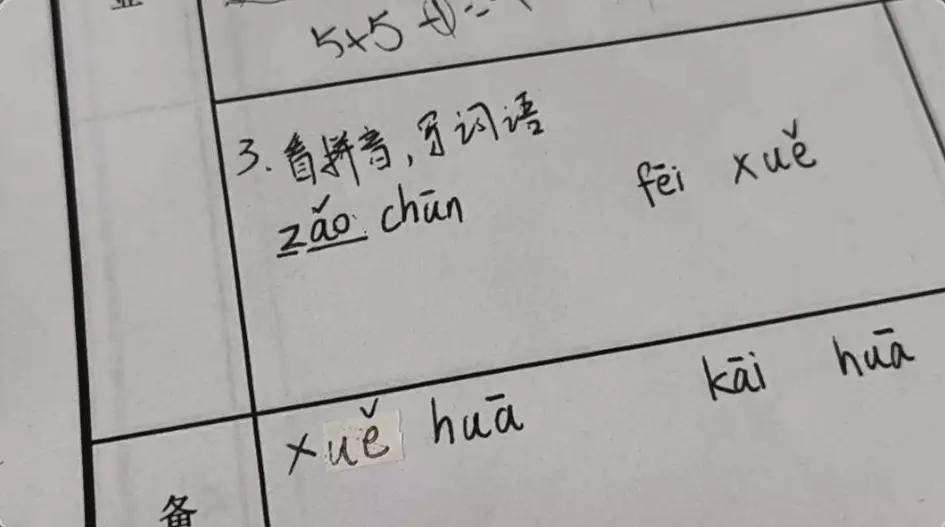 5×5
3.看拼音,写词语
zǎo chūn fēi xuě
xuě huā kāi huā
备